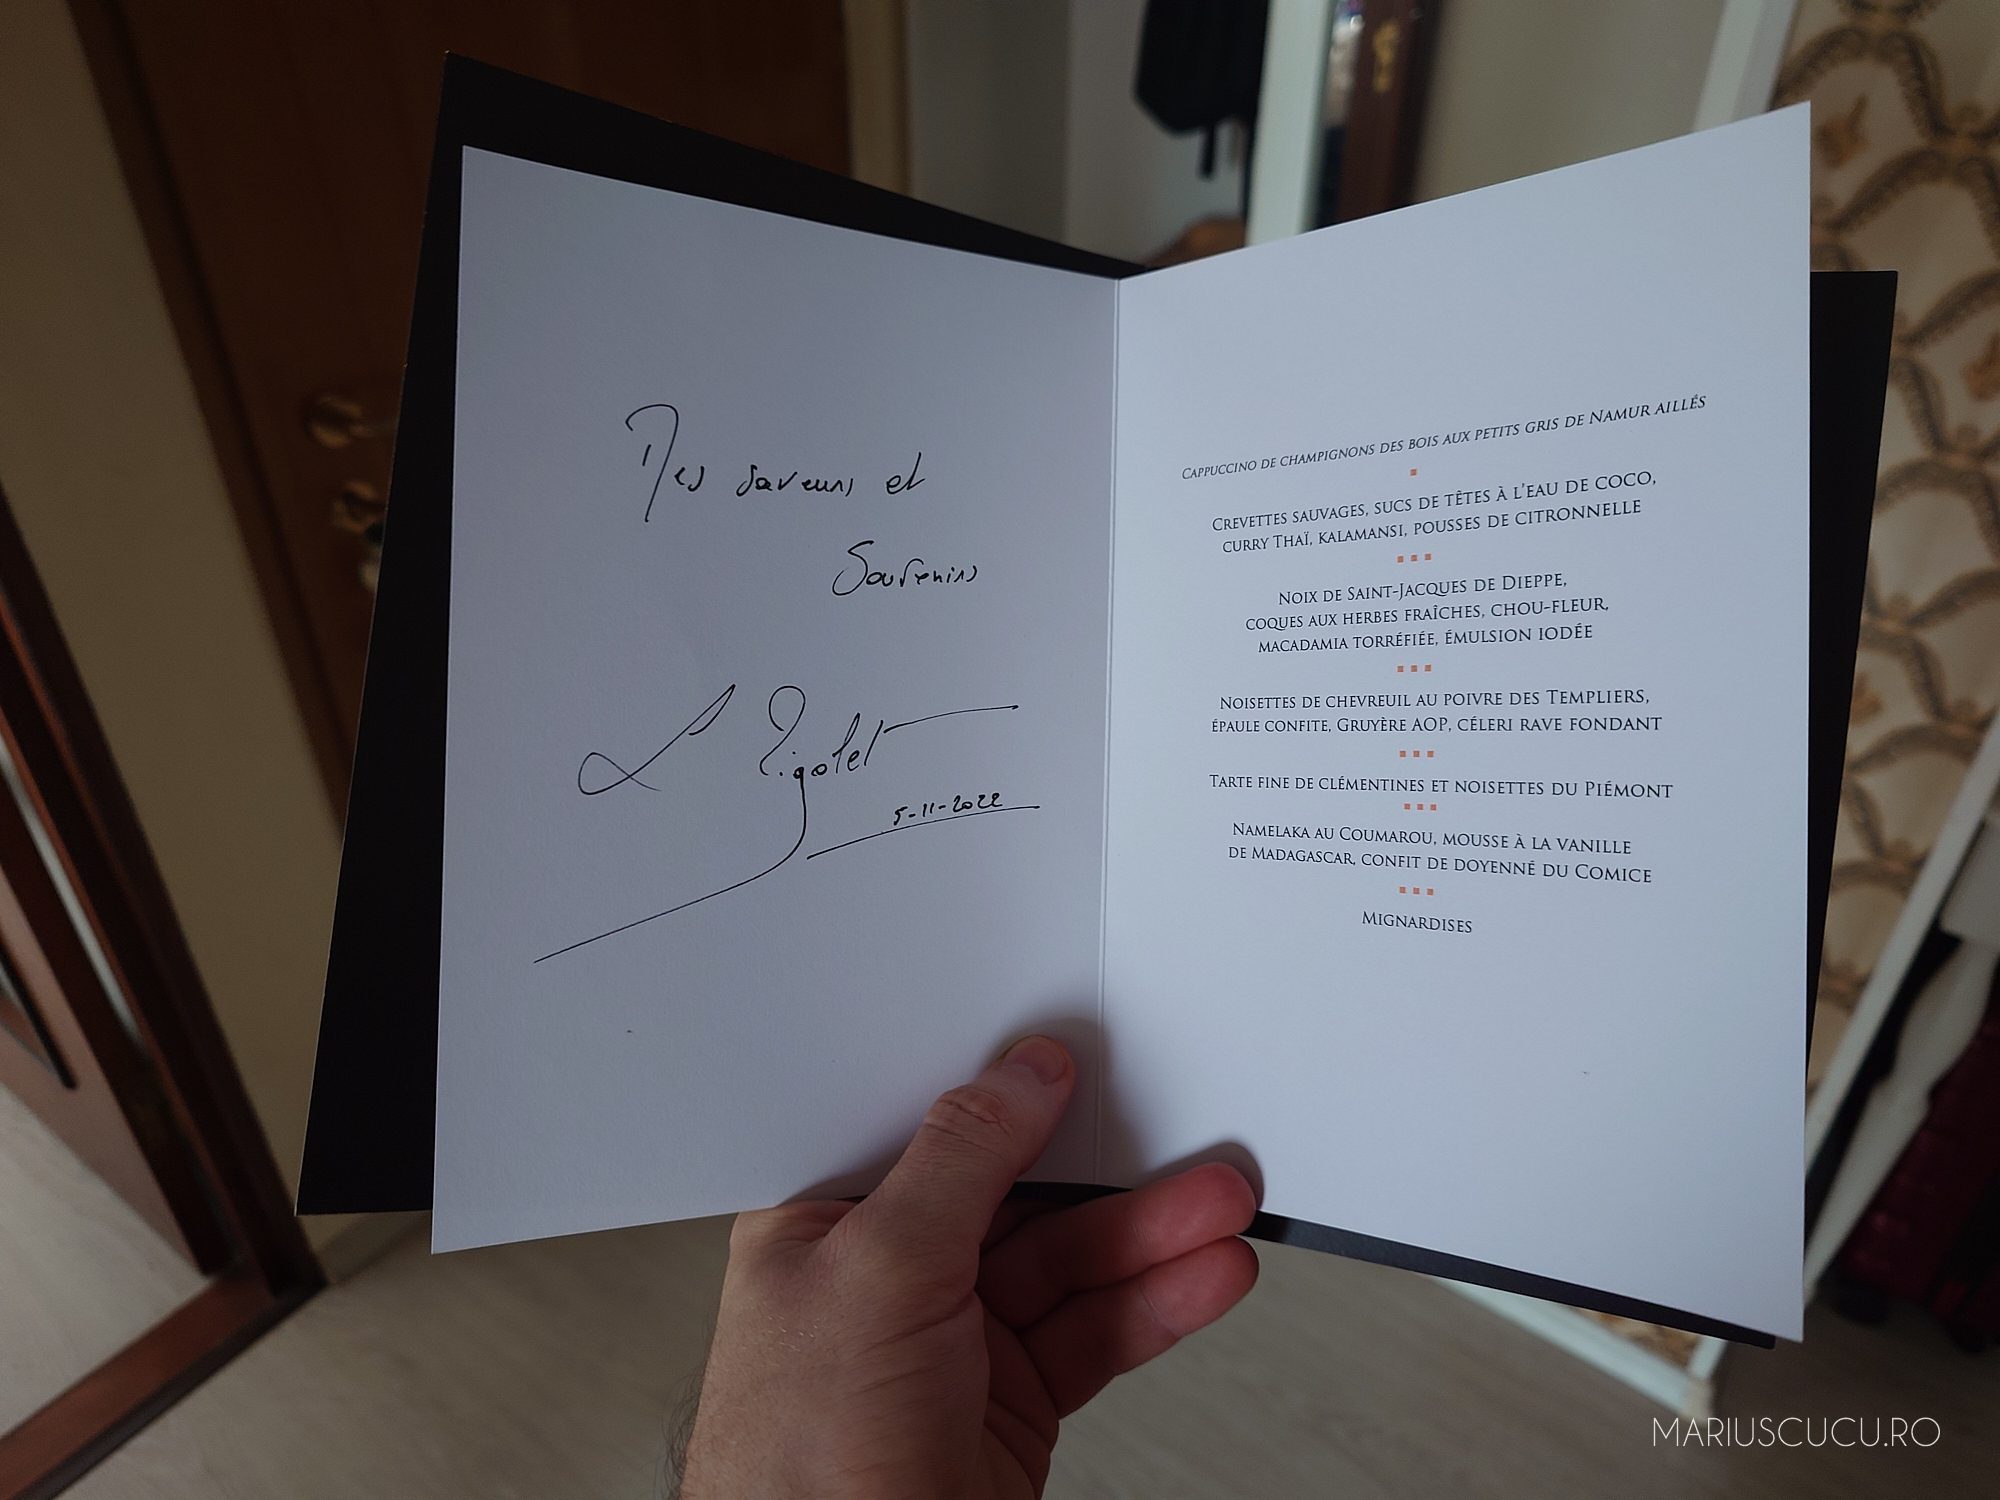 Mes saveurs et
Souvenirs
L Rigolet
5-11-2022
Cappuccino de champignons des bois aux petits gris de Namur aillés
Crevettes sauvages, sucs de têtes à l'eau de coco,
curry Thaï, kalamansi, pousses de citronnelle
Noix de Saint-Jacques de Dieppe,
coques aux herbes fraîches, chou-fleur,
macadamia torréfiée, émulsion iodée
Noisettes de chevreuil au poivre des Templiers,
épaule confite, Gruyère AOP, céleri rave fondant
Tarte fine de clémentines et noisettes du Piémont
Namelaka au Coumarou, mousse à la vanille
de Madagascar, confit de doyenné du Comice
Mignardises
MARIUSCUCU.RO